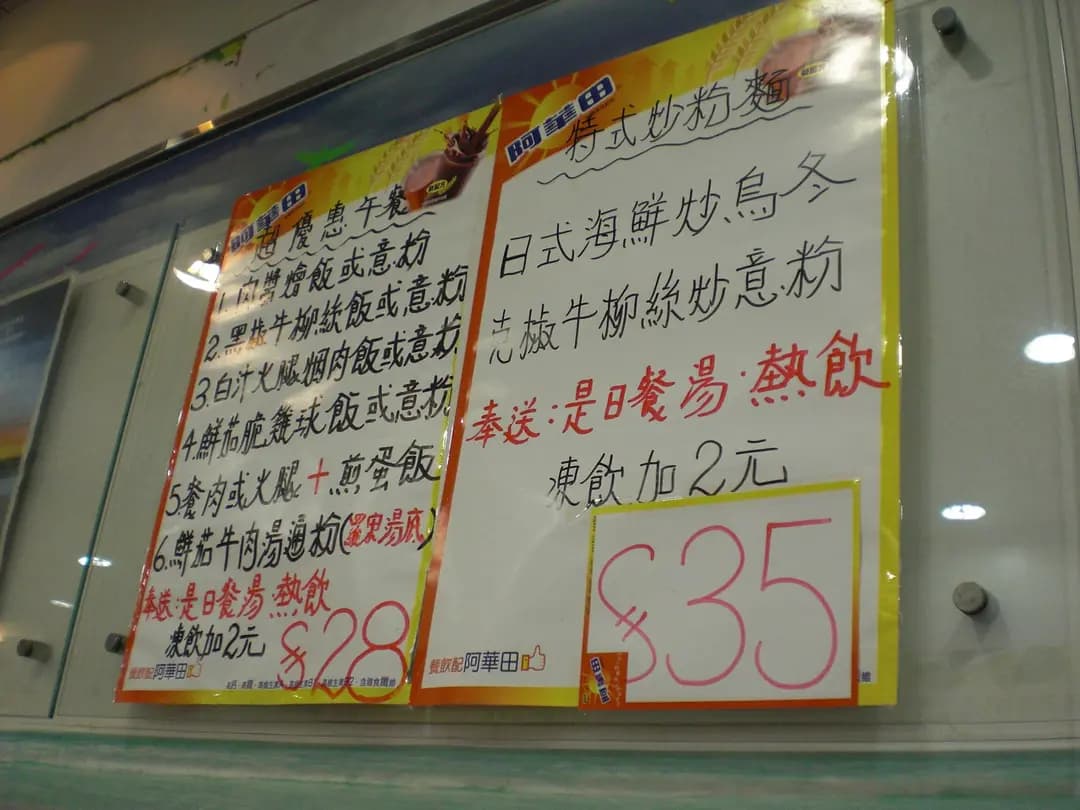 阿華田
超優惠午餐
1.肉醬燴飯或意粉
2.黑椒牛柳絲飯或意粉
3.白汁火腿烟肉飯或意粉
4.鮮茄脆雞球飯或意粉
5.餐肉或火腿+煎蛋飯
6.鮮茄牛肉湯通粉(羅宋湯底)
奉送:是日餐湯.熱飲
凍飲加2元
$28
餐飲配阿華田
阿華田
特式炒粉麵
日式海鮮炒烏冬
椒牛柳絲炒意粉
奉送:是日餐湯.熱飲
凍飲加2元
$35
餐飲配阿華田